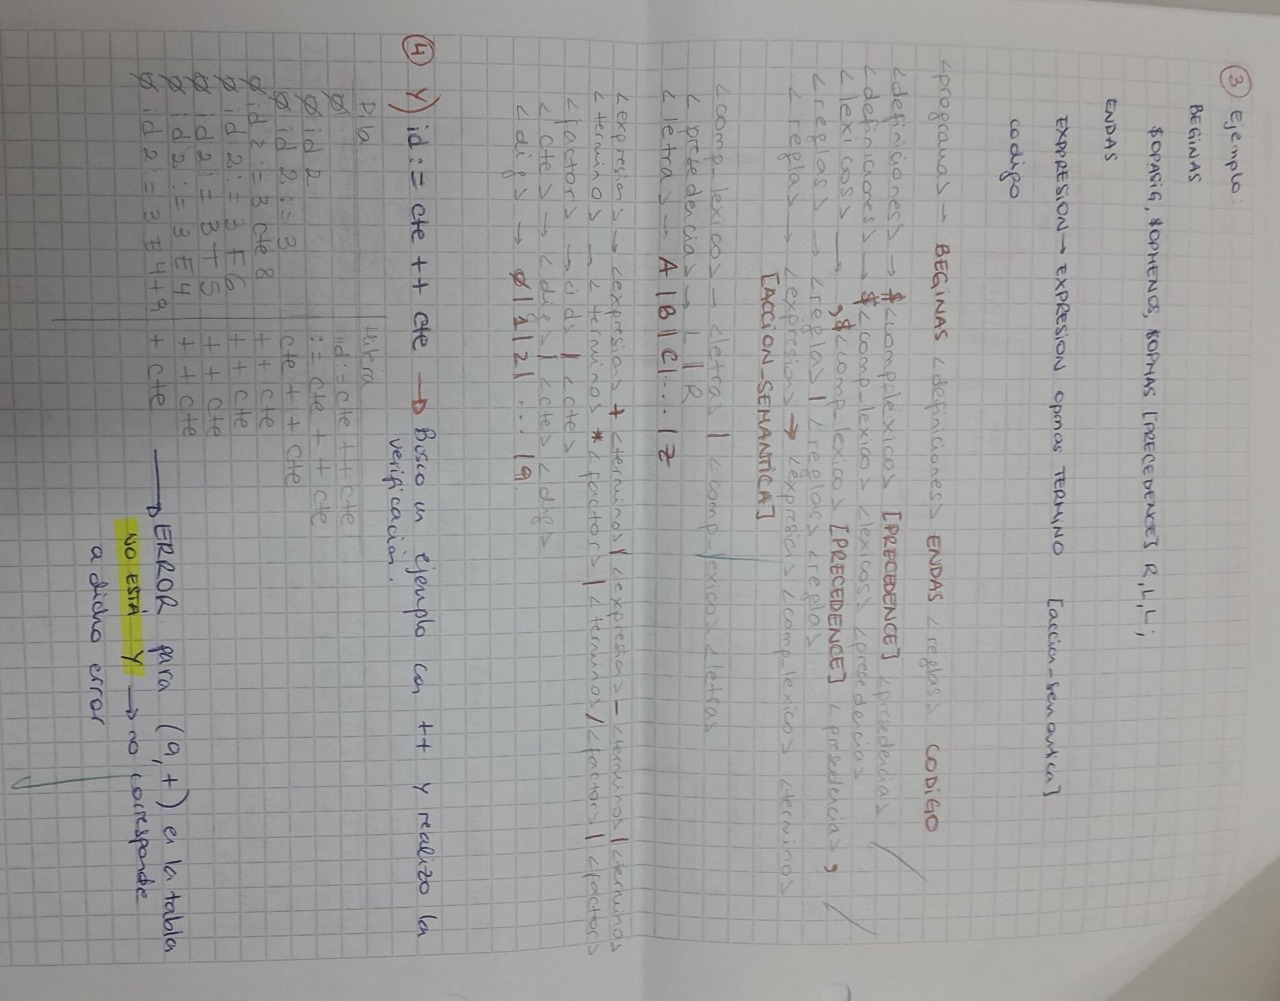 ③ Ejemplo:
BEGINAS
$OPASIG, $OPMENOS, $OPMAS [PRECEDENCE] R, L, L;
ENDAS
EXPRESION → EXPRESION opmas TERMINO [accion-semantica]
codigo
<programa> → BEGINAS <definiciones> ENDAS <reglas> CODIGO
<definiciones> → $ <comp_lexico> [PRECEDENCE] <precedencia>
<definiciones> → $ <comp_lexico> <lexicos> <precedencia>
<lexicos> → , $ <comp_lexico> [PRECEDENCE] <precedencia> ,
<reglas> → <reglas> | <reglas> <reglas>
<reglas> → <expresion> → <expresion> <comp_lexico> <termino>
[ACCION_SEMANTICA]
<comp_lexico> → <letra> | <comp_lexico> <letra>
<precedencia> → L | R
<letra> → A | B | C | ... | Z
<expresion> → <expresion> + <termino> | <expresion> - <termino> | <termino>
<termino> → <termino> * <factor> | <termino> / <factor> | <factor>
<factor> → <id> | <cte>
<cte> → <dig> | <cte> <dig>
<dig> → 0 | 1 | 2 | ... | 9
④ Y) id := cte ++ cte → Busco un ejemplo con ++ y realizo la
verificacion.
Pila
0 id := cte ++ cte
0 id 2 := cte + + cte
0 id 2 := 3 cte + + cte
0 id 2 := 3 cte 8 + + cte
0 id 2 := 3 F 6 + + cte
0 id 2 := 3 T 5 + + cte
0 id 2 := 3 E 4 + + cte
0 id 2 := 3 E 4 + 9 + cte → ERROR para (9, +) en la tabla
NO ESTÁ Y → no corresponde
a dicho error